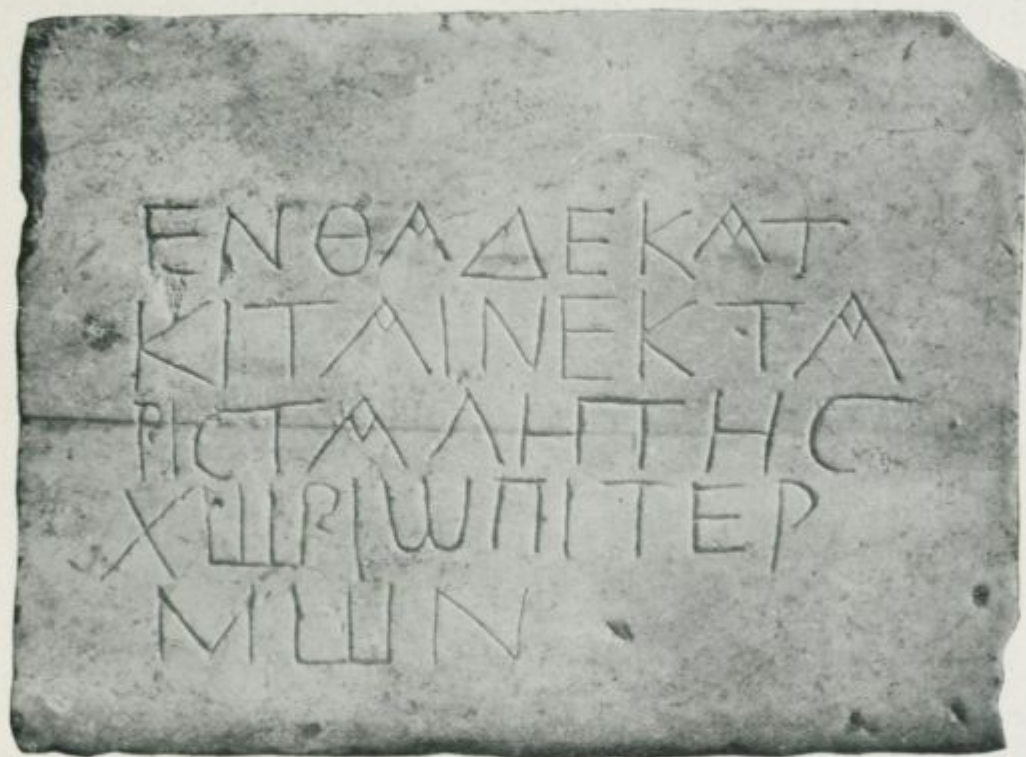 ΕΝΘΑΔΕΚΑΤ
ΚΙΤΑΙΝΕΚΤΑ
ΡΙϹΤΑΛΗΤΗϹ
ΧШΡΙѠΠΙΤΕΡ
ΜШΝ